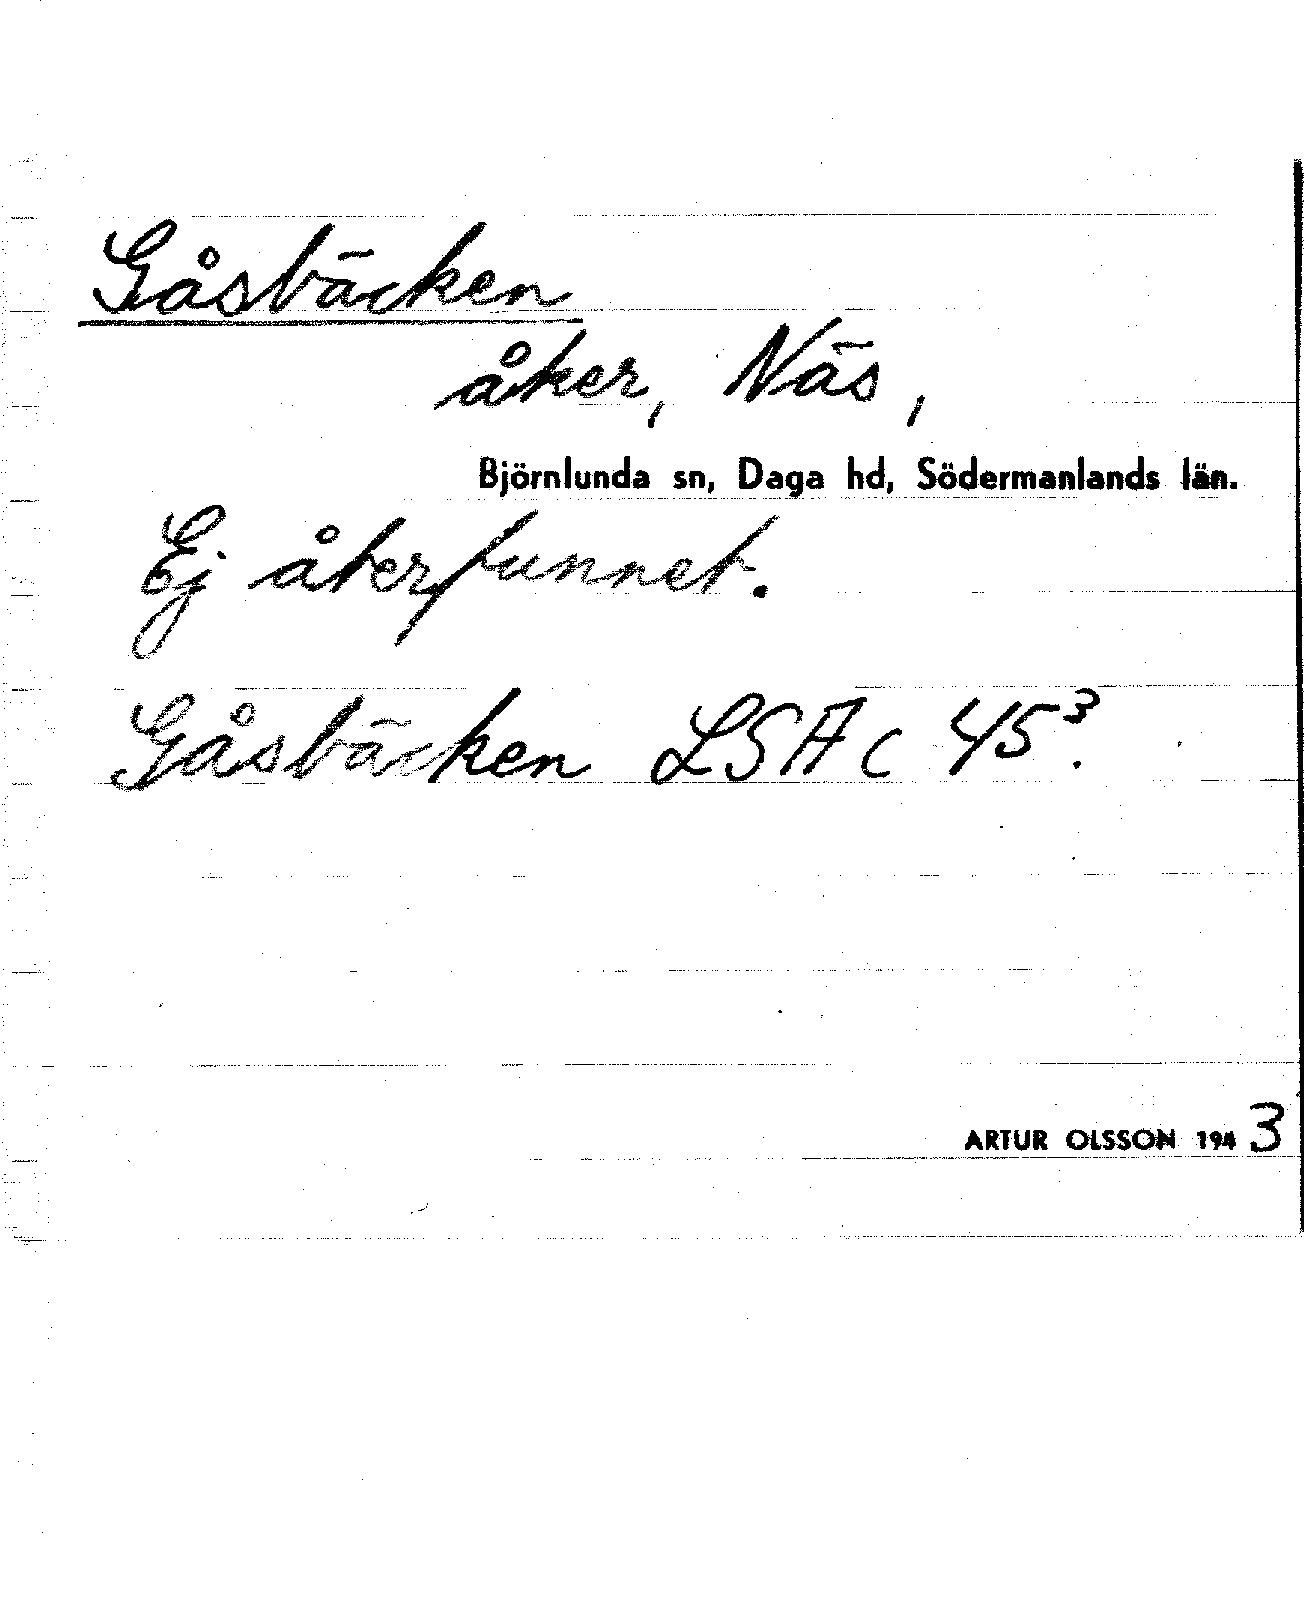 Gåsbäcken
åker, Näs,
Björnlunda sn, Daga hd, Södermanlands län.
Ej återfunnet.
Gåsbäcken LSA C 45³.
ARTUR OLSSON 1943